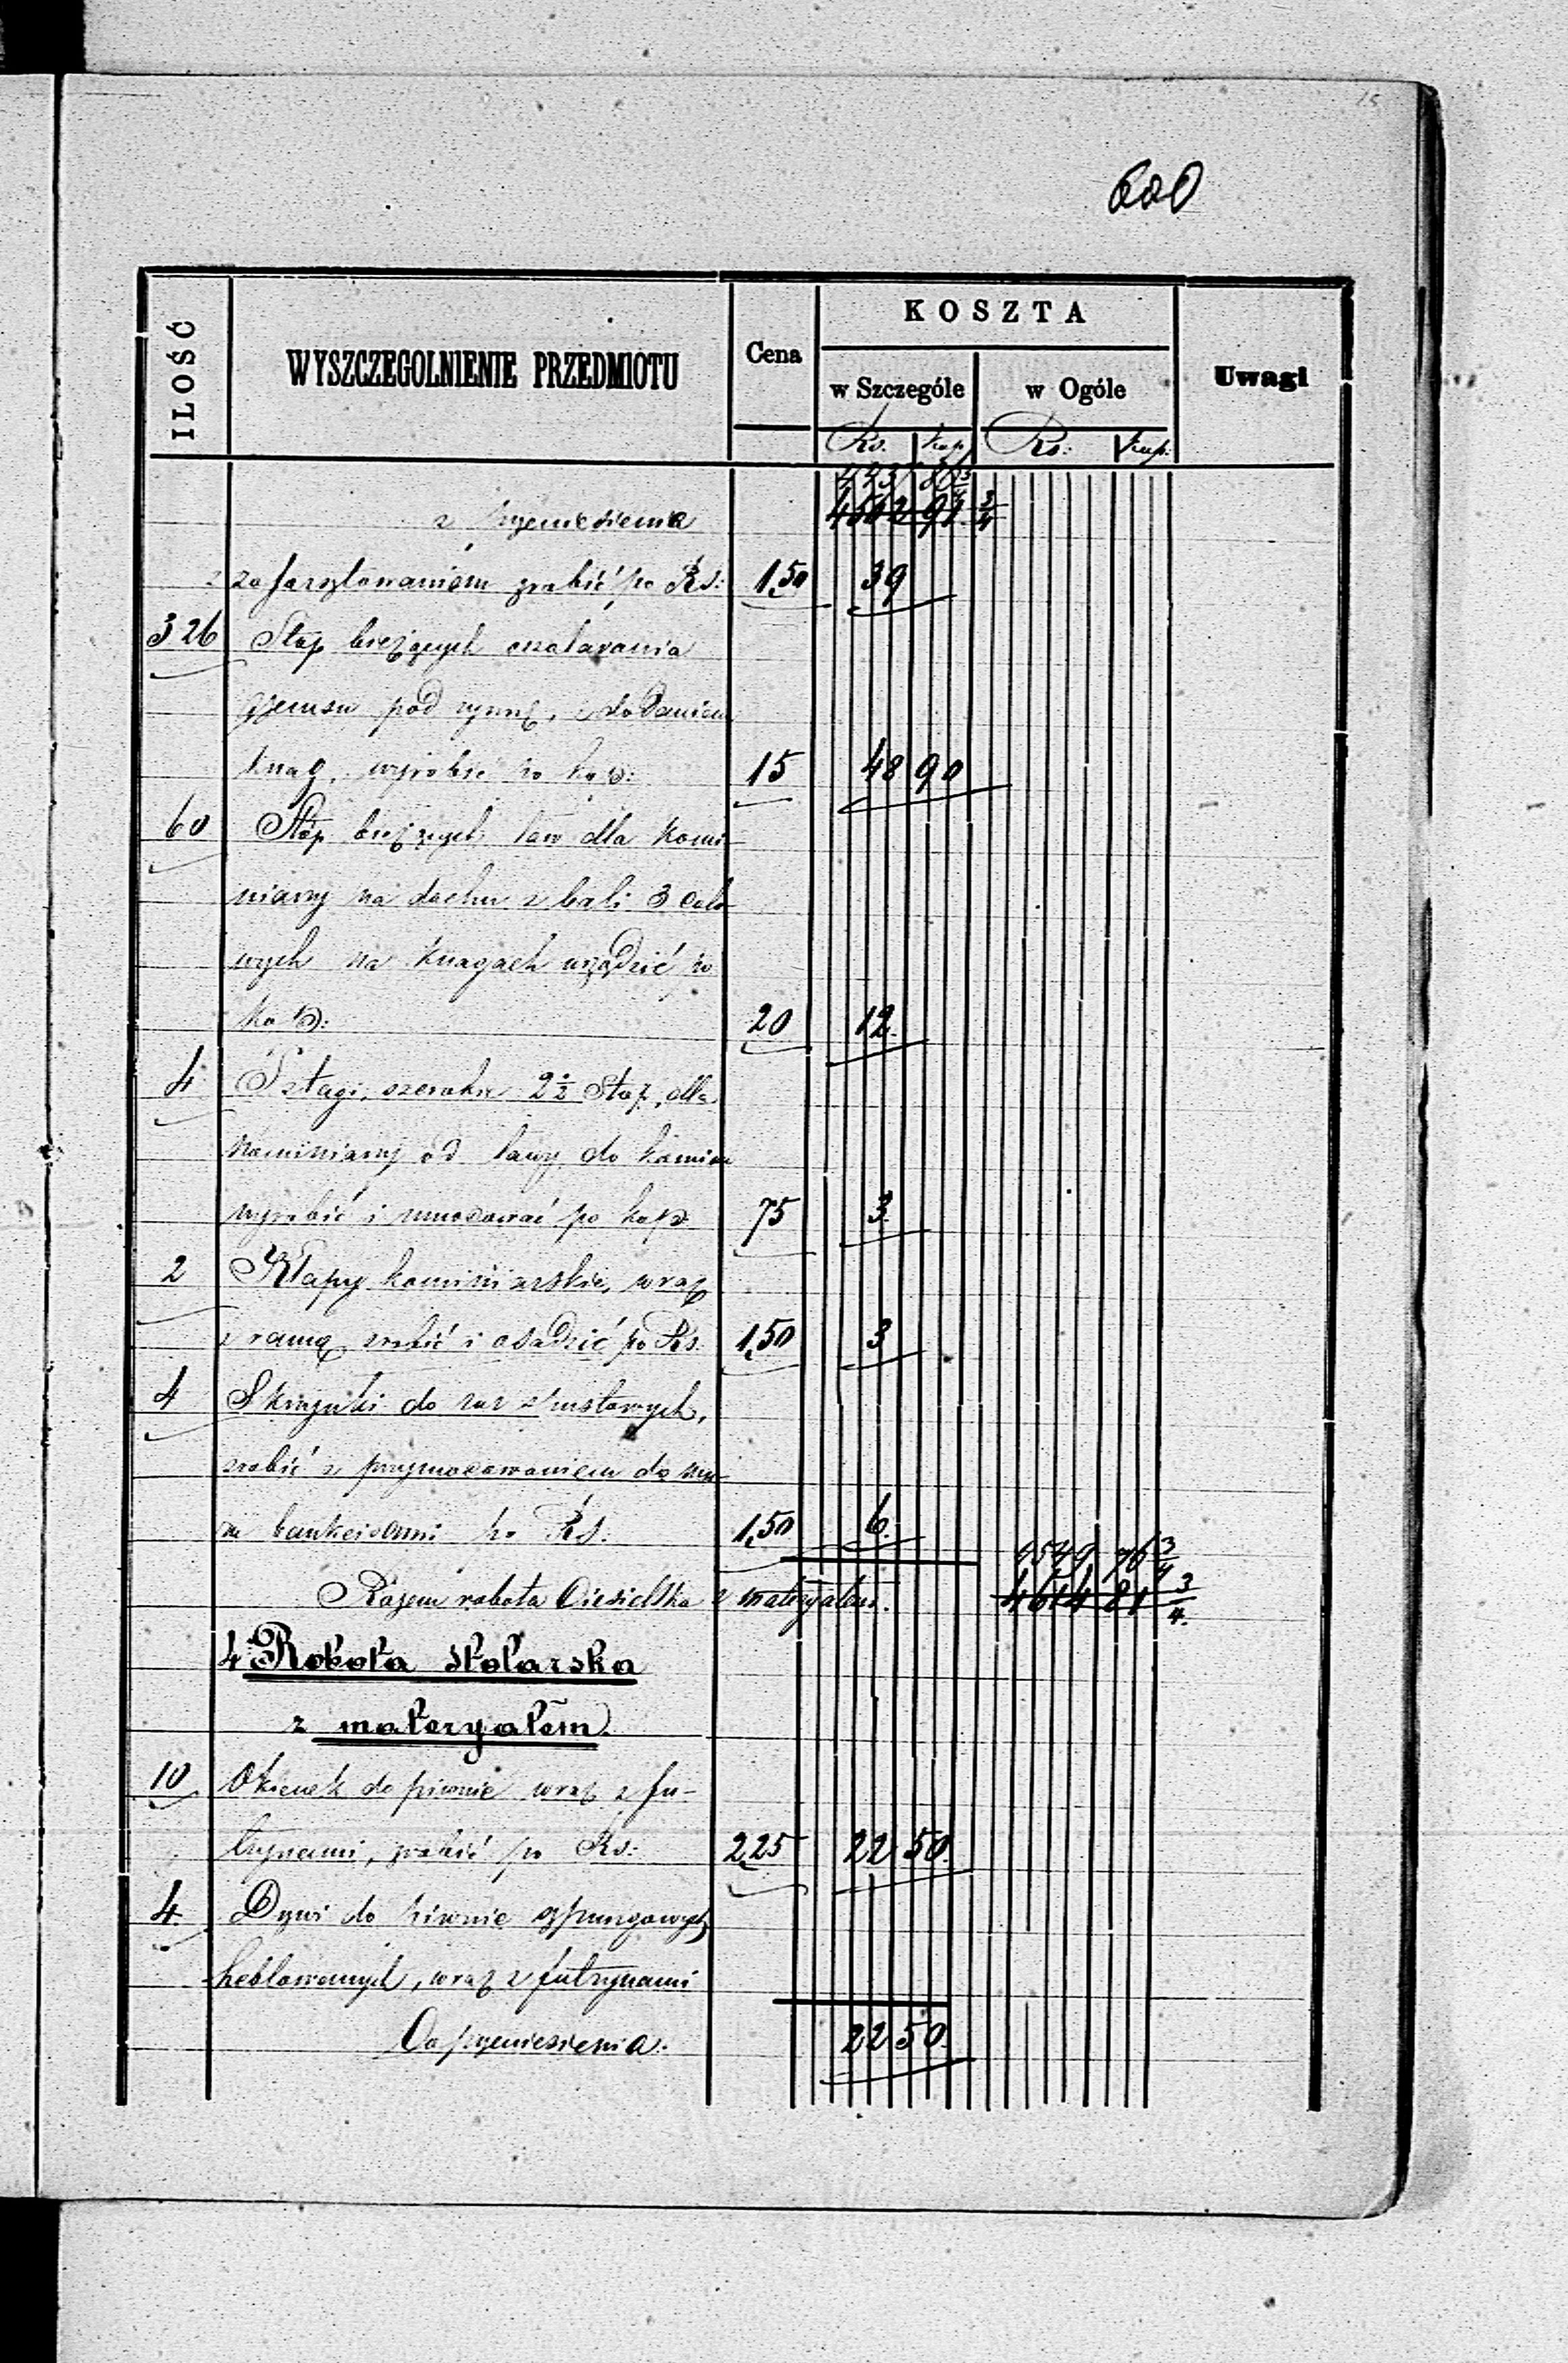 15
600
ILOŚĆ WYSZCZEGOLNIENIE PRZEDMIOTU Cena KOSZTA Uwagi
w Szczególe w Ogóle
Rs. kop. Rs: kop.
z przeniesienia 4502 91 3/4
zafarsztowaniem zrobić po Rs: 1,50 39
326 Stóp bieżących oszalowania
gzemsu pod rynnę, z dodaniem
knag, wyrobić po kop: 15 48 90
60 Stóp bieżących ław dla komi-
niarzy na dachu z bali 3 calo
wych na knagach urządzić po
kop: 20 12
4 Sztagi, szerokie 2 1/2 Stop, dla
kominiarzy od ławy do komina
wyrobić i umocować po kop 75 3
2 Klapy kominiarskie, wraz
z ramą zrobić i osadzić po Rs. 1,50 3
4 Skrzynki do rur spustowych,
zrobić z przymocowaniem do mu-
ru bankeisami po Rs: 1,50 6
4549 76 3/4
Razem robota Ciesielska z materyałem. 4614 81 3/4
4 Robota stolarska
z materyałem.
10 Okienek do piwnic wraz z fu-
trynami, zrobić po Rs: 2,25 22 50
4 Drzwi do piwnic szpungowych
heblowanych, wraz z futrynami
Do przeniesienia. 22 50